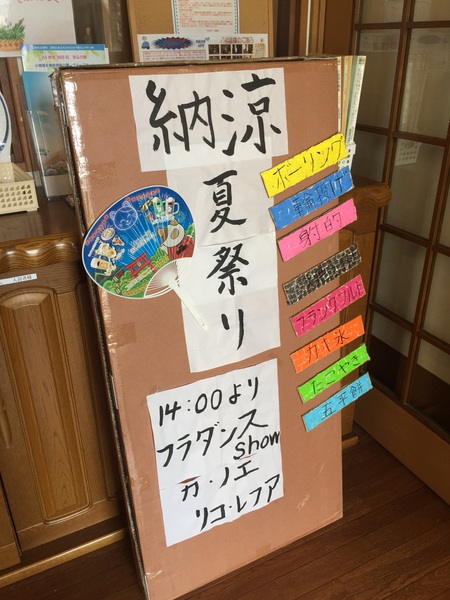 納涼
夏祭り
ボーリング
輪投げ
射的
フランクフルト
カキ氷
たこやき
五平餅
14:00より
フラダンス
Show
カ・ノエ
リコ・レフア